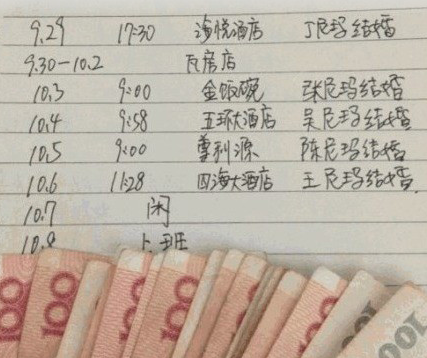 9.29 17:30 海悦酒店 丁尼玛结婚
9.30-10.2 瓦房店
10.3 9:00 金饭碗 张尼玛结婚
10.4 9:58 五环大酒店 吴尼玛结婚
10.5 9:00 尊利源 陈尼玛结婚
10.6 11:28 四海大酒店 王尼玛结婚
10.7 闲
10.8 上班
100 100 100 100 100 100 100